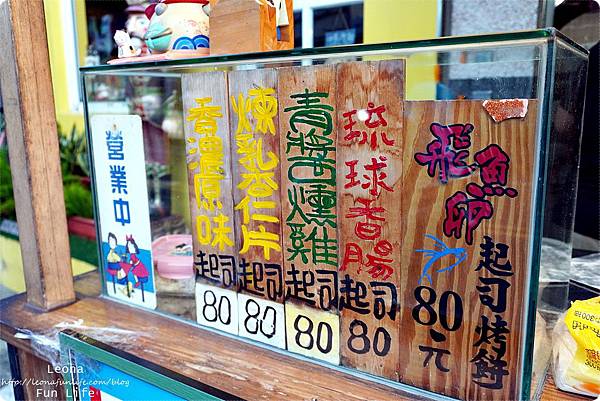 營業中
香濃原味
起司
80
煉乳杏仁片
起司
80
青醬燻雞
起司
80
琉球香腸
起司
80
飛魚卵
起司烤餅
80元
Leona
http://leonafunlife.com/blog
Fun Life